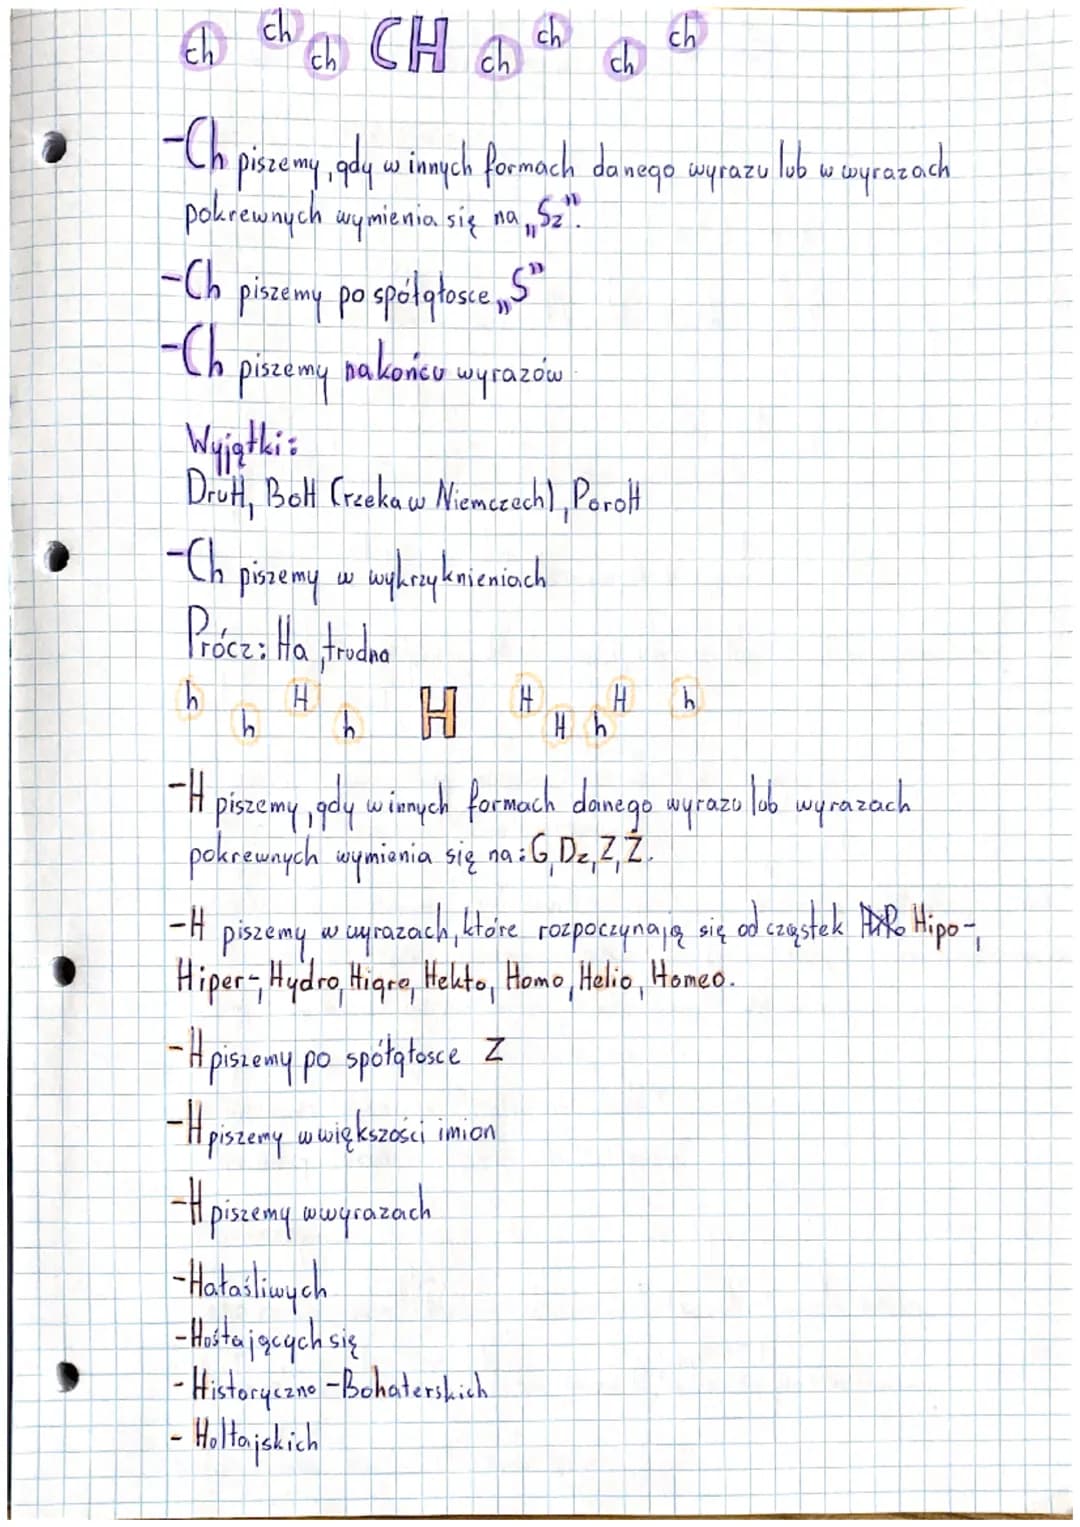 ch ch ch CH ch ch ch ch
-Ch piszemy, gdy w innych formach danego wyrazu lub w wyrazach
pokrewnych wymienia się na „Sz".
-Ch piszemy po spółgłosce „S"
-Ch piszemy na końcu wyrazów
Wyjątki:
DruH, BoH (rzeka w Niemczech), PoroH
-Ch piszemy w wykrzyknieniach
Prócz: Ha, trudna
h h H h H H H h H h
-H piszemy, gdy w innych formach danego wyrazu lub wyrazach
pokrewnych wymienia się na: G, Dz, Z, Ż.
-H piszemy w wyrazach, które rozpoczynają się od cząstek Hipo-,
Hiper-, Hydro, Higro, Hekto, Homo, Helio, Homeo.
-H piszemy po spółgłosce Z
-H piszemy w większości imion
-H piszemy w wyrazach
-Hałaśliwych
-Hośtających się
-Historyczno-Bohaterskich
- Holtajskich